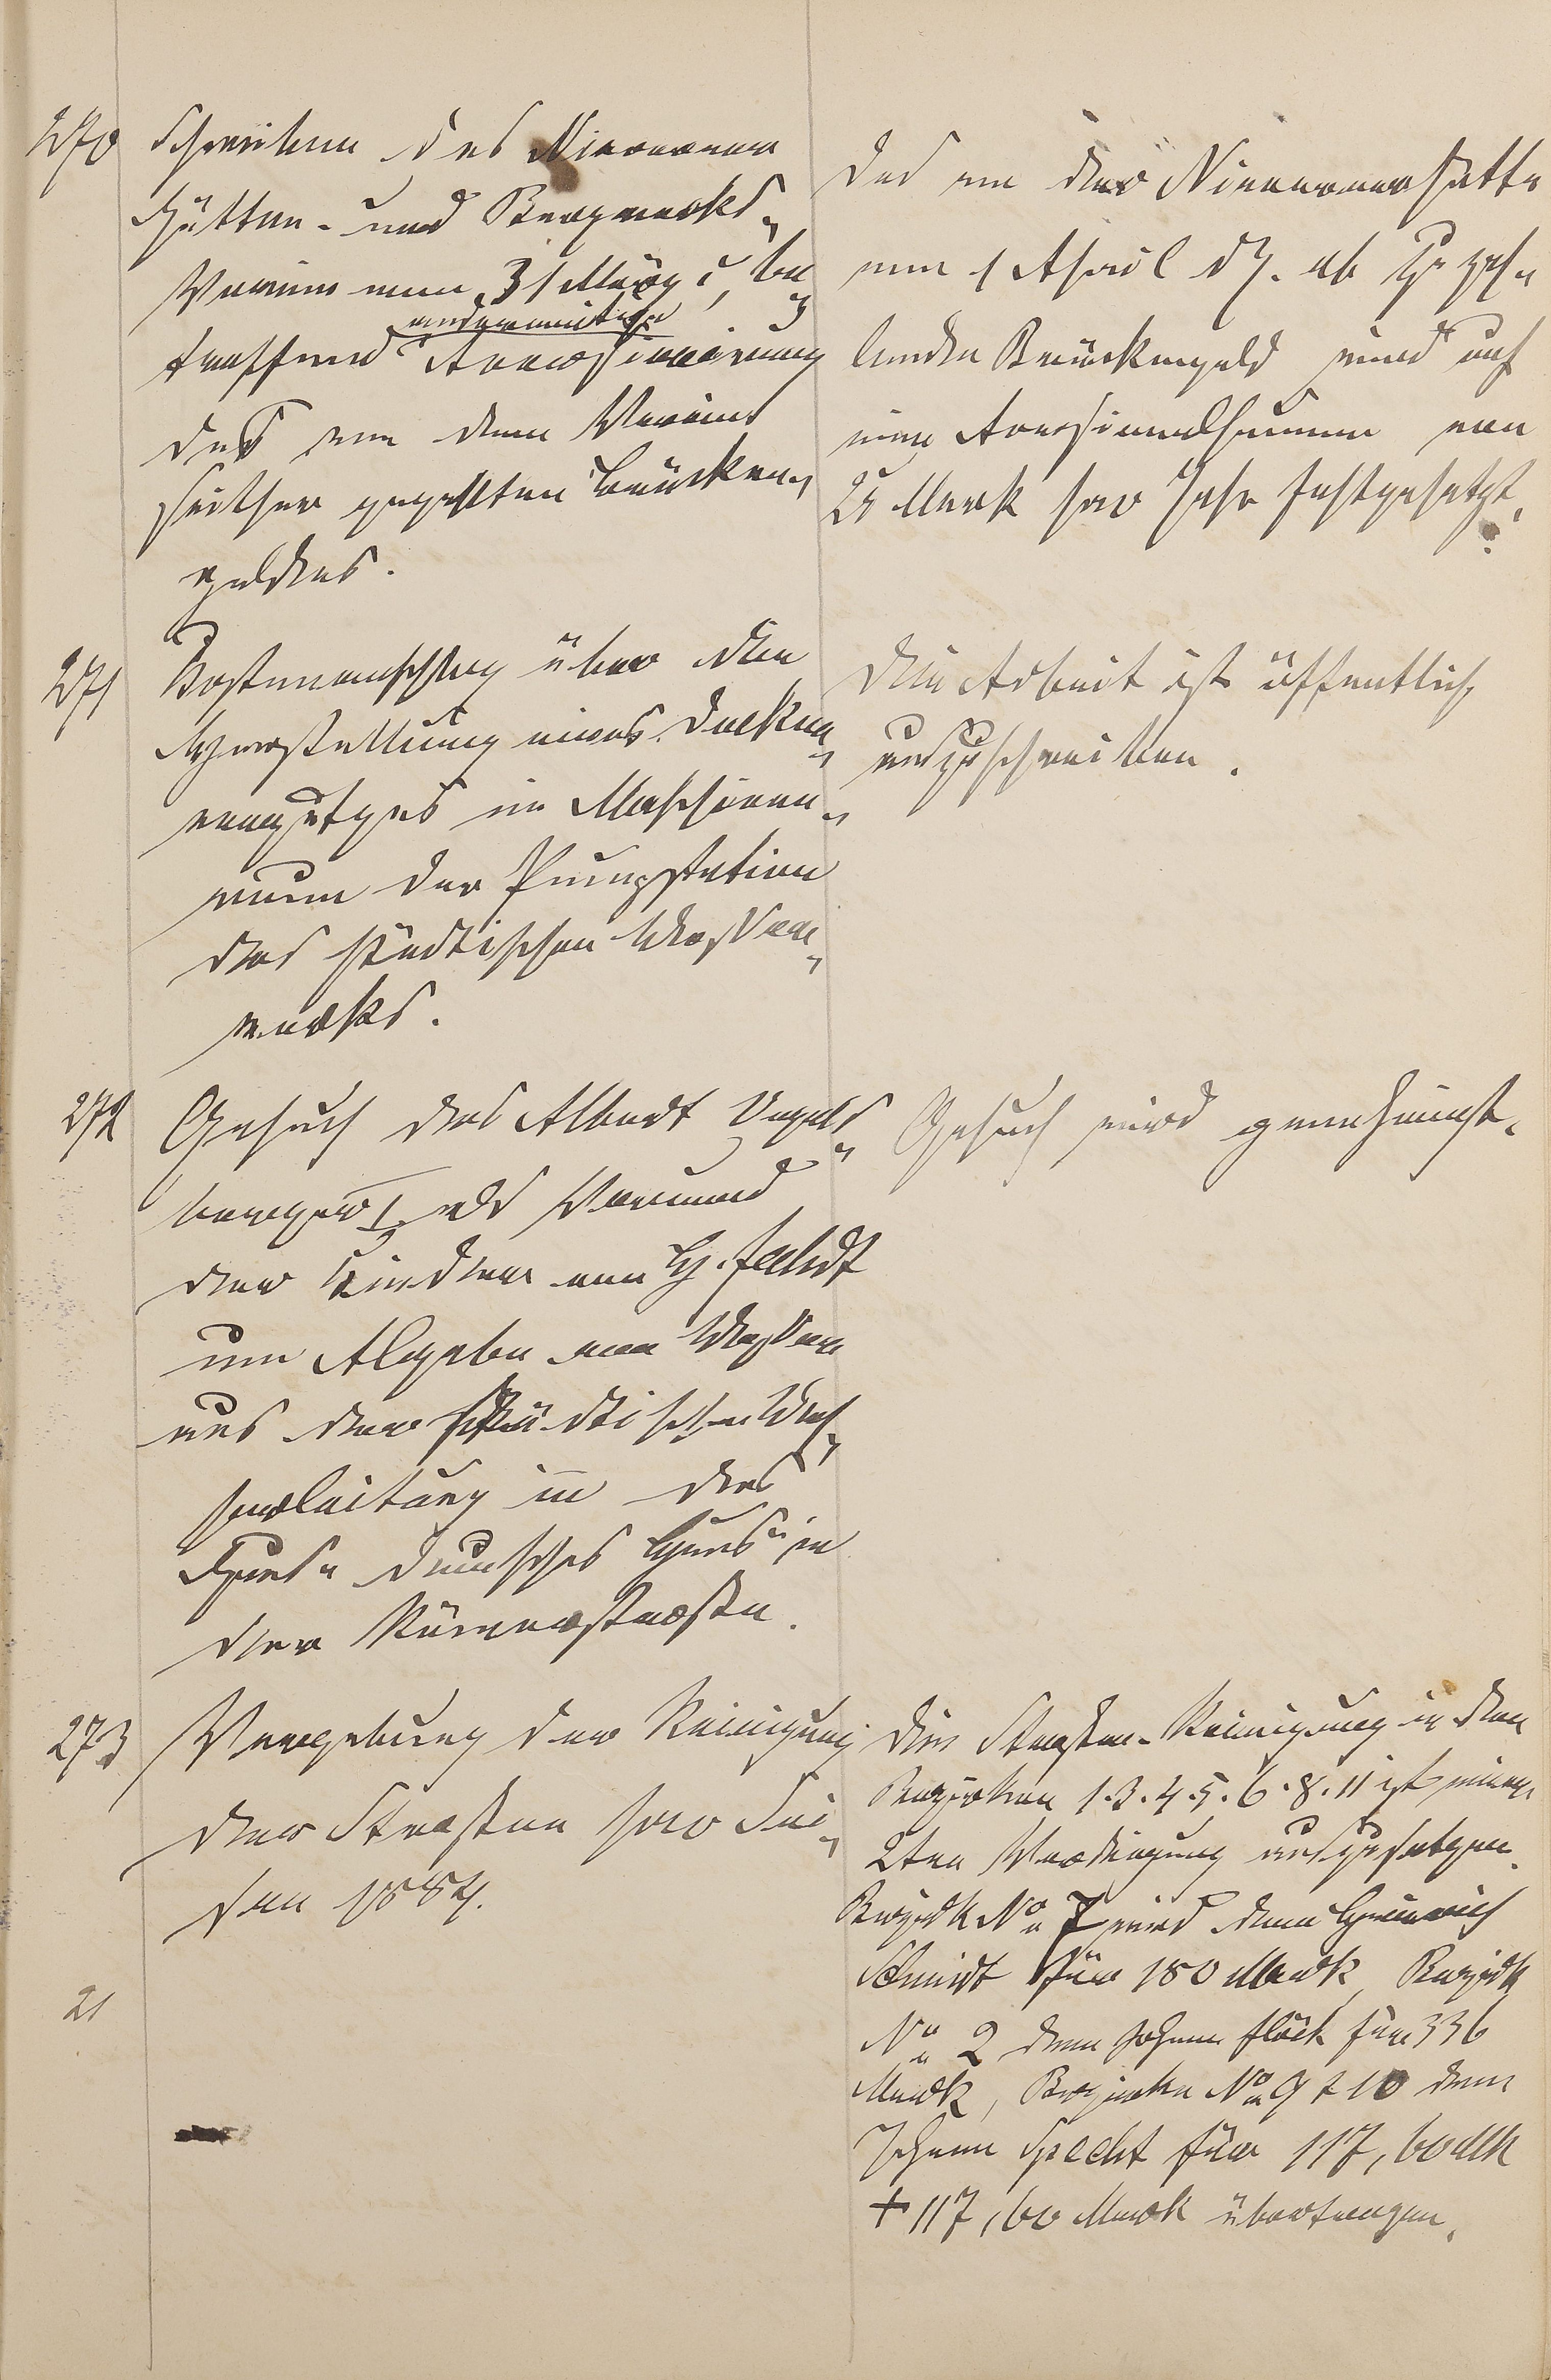 270
Schreiben des Nieverner
Hütten- und Bergwerks-
Vereins vom 31 März c, be-
treffend anderweitige Aversionirung
des von dem Vereine
seither gezahlten Brücken-
geldes.
Das von der Nievernerhütte
vom 1 April d J. ab zu zah-
lende Brückengeld wird auf
eine Aversionalsumme von
Mark pro Jahr festgesetzt.
271
Kostenanschlag über die
Herstellung eines Decken-
verputzes im Maschinen-
raum der Pumpstation
des städtischen Wasser-
werks.
Die Arbeit ist öffentlich
auszuschreiben.
272
Gesuch des Albert Vogels-
berger I. als Vormund
der Kinder von H. Faldt
um Abgabe von Wasser
aus der städtischen Was-
serleitung in das
deutsches Haus" in
der Römerstraße.
Gesuch wird genehmigt.
273
Vergebung der Reinigung
der Straßen pro Sai-
son 1884.
Die Straßen-Reinigung in den
Bezirken 1.3.4.5.6.8.11 ist einer
2ten Verdingung auszusetzen.
Bezirk No 7 wird dem Heinrich
Schmidt für 180 Mark, Bezirk
No 2 dem Johann Flöck für 336
Mark, Bezirke No 9 + 10 dem
Johann Specht für 117,60 Mk
+ 117,60 Mark übertragen.
21